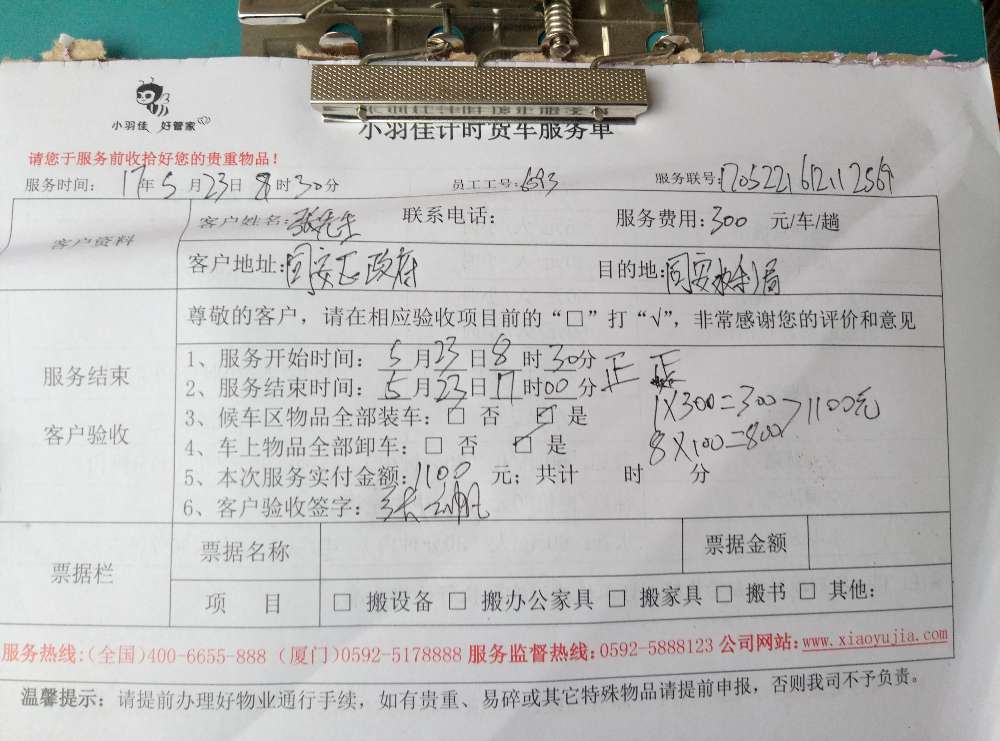 小羽佳 好管家
小羽佳计时货车服务单
请您于服务前收拾好您的贵重物品！
服务时间： 17年5月23日8时30分 员工工号：6593 服务联号：
客户资料 客户姓名：张先生 联系电话： 服务费用：300 元/车/趟
客户地址：同安区政府 目的地：同安水利局
尊敬的客户，请在相应验收项目前的“□”打“√”，非常感谢您的评价和意见
服务结束
客户验收
1、服务开始时间：5月23日8时30分
2、服务结束时间：5月23日17时00分
正 正
3、候车区物品全部装车：□ 否 ☑ 是
4、车上物品全部卸车：□ 否 ☑ 是
1×300=300
8×100=800
>1100元
5、本次服务实付金额：1100 元；共计 时 分
6、客户验收签字：张
票据栏
票据名称 票据金额
项 目 □ 搬设备 □ 搬办公家具 □ 搬家具 □ 搬书 □ 其他：
服务热线：(全国)400-6655-888 (厦门)0592-5178888 服务监督热线：0592-5888123 公司网站：www.xiaoyujia.com
温馨提示：请提前办理好物业通行手续，如有贵重、易碎或其它特殊物品请提前申报，否则我司不予负责。